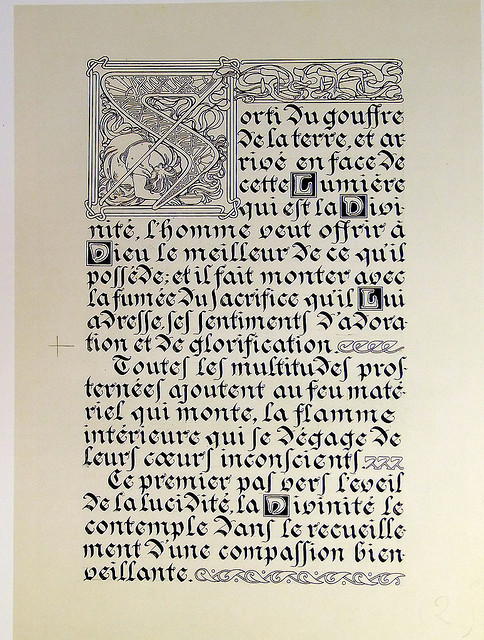 Sorti du gouffre
de la terre, et ar
rivé en face de
cette Lumière
qui est la Divi
nité, l'homme veut offrir à
Dieu le meilleur de ce qu'il
possède; et il fait monter avec
la fumée du sacrifice qu'il Lui
adresse, ses sentiments d'adora
tion et de glorification.
Toutes les multitudes pros
ternées ajoutent au feu maté
riel qui monte, la flamme
intérieure qui se dégage de
leurs cœurs inconscients
Ce premier pas vers l'eveil
de la lucidité, la Divinité le
contemple dans le recueille
ment d'une compassion bien
veillante.
(2)